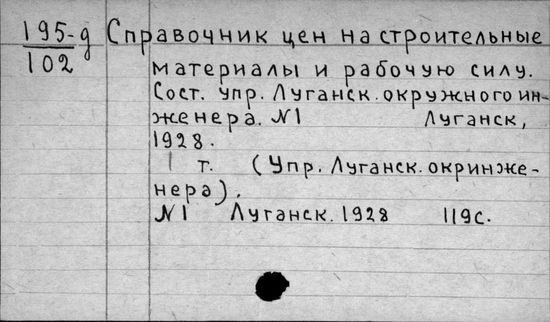 195-д Справочник цен на строительные
102
материалы и рабочую силу.
Сост. упр. Луганск. окружного ин-
женера. N1 Луганск,
1928.
1 т. (Упр. Луганск. окринже-
нера).
N1 Луганск. 1928 119с.